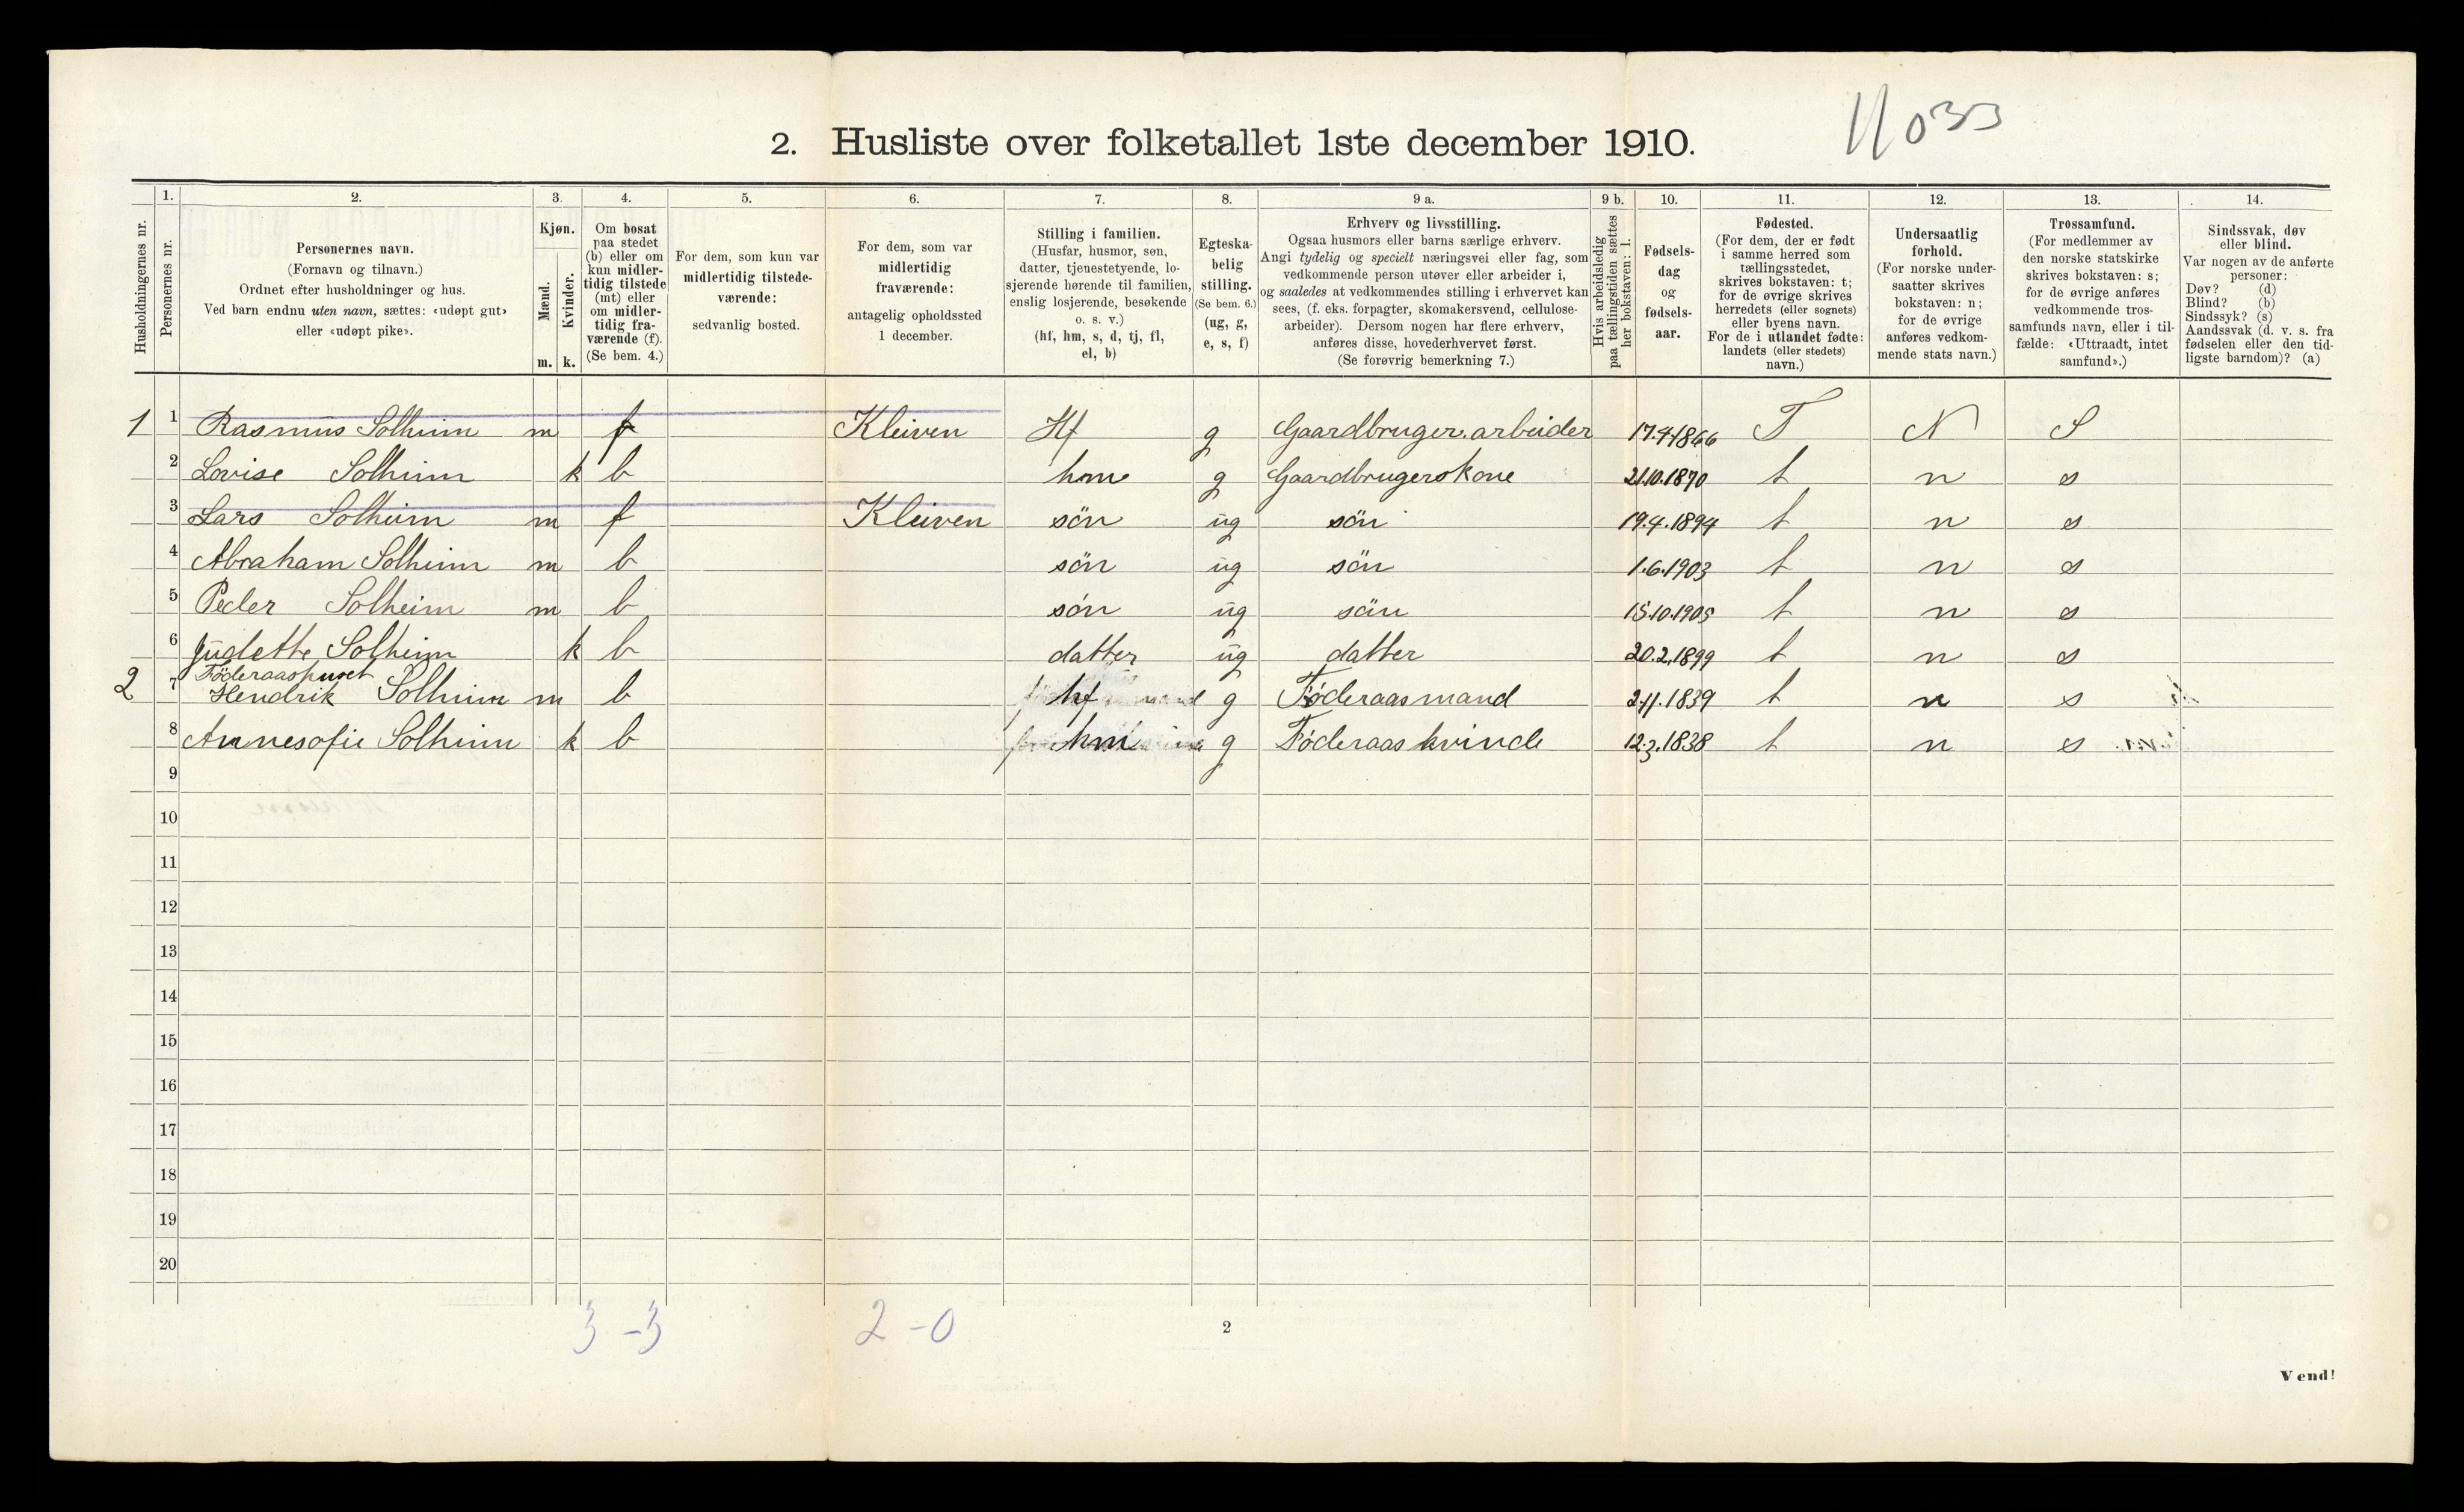 11033
2. Husliste over folketallet 1ste december 1910.
Husholdningernes nr.
1.
Personernes nr.
2.
Personernes navn.
(Fornavn og tilnavn.)
Ordnet efter husholdninger og hus.
Ved barn endnu uten navn, sættes: «udøpt gut»
eller «udøpt pike».
3.
Kjøn.
Mænd.
Kvinder.
m. k.
4.
Om bosat
paa stedet
(b) eller om
kun midler-
tidig tilstede
(mt) eller
om midler-
tidig fra-
værende (f).
(Se bem. 4.)
5.
For dem, som kun var
midlertidig tilstede-
værende:
sedvanlig bosted.
6.
For dem, som var
midlertidig
fraværende:
antagelig opholdssted
1 december.
7.
Stilling i familien.
(Husfar, husmor, søn,
datter, tjenestetyende, lo-
sjerende hørende til familien,
enslig losjerende, besøkende
o. s. v.)
(hf, hm, s, d, tj, fl,
el, b)
8.
Egteska-
belig
stilling.
(Se bem. 6.)
(ug, g,
e, s, f)
9 a.
Erhverv og livsstilling.
Ogsaa husmors eller barns særlige erhverv.
Angi tydelig og specielt næringsvei eller fag, som
vedkommende person utøver eller arbeider i,
og saaledes at vedkommendes stilling i erhvervet kan
sees, (f. eks. forpagter, skomakersvend, cellulose-
arbeider). Dersom nogen har flere erhverv,
anføres disse, hovederhvervet først.
(Se forøvrig bemerkning 7.)
9 b.
Hvis arbeidsledig
paa tællingstiden sættes
her bokstaven: l.
10.
Fødsels-
dag
og
fødsels-
aar.
11.
Fødested.
(For dem, der er født
i samme herred som
tællingsstedet,
skrives bokstaven: t;
for de øvrige skrives
herredets (eller sognets)
eller byens navn.
For de i utlandet fødte:
landets (eller stedets)
navn.)
12.
Undersaatlig
forhold.
(For norske under-
saatter skrives
bokstaven: n;
for de øvrige
anføres vedkom-
mende stats navn.)
13.
Trossamfund.
(For medlemmer av
den norske statskirke
skrives bokstaven: s;
for de øvrige anføres
vedkommende tros-
samfunds navn, eller i til-
fælde: «Uttraadt, intet
samfund».)
14.
Sindssvak, døv
eller blind.
Var nogen av de anførte
personer:
Døv? (d)
Blind? (b)
Sindssyk? (s)
Aandssvak (d. v. s. fra
fødselen eller den tid-
ligste barndom)? (a)
1 1 Rasmus Solheim m f Kleiven Hf g Gaardbruger.arbeider 17.4.1866 T N S
2 Lovise Solheim k b hm g Gaardbrugerskone 21.10.1870 t n s
3 Lars Solheim m f Kleiven sön ug sön 19.4.1894 t n s
4 Abraham Solheim m b sön ug sön 1.6.1903 t n s
5 Peder Solheim m b sön ug sön 15.10.1905 t n s
6 Judette Solheim k b datter ug datter 20.2.1899 t n s
Föderaashuset
2 7 Hendrik Solheim m b hf g Föderaasmand 2.11.1839 t n s
8 Annesofie Solheim k b hm g Föderaaskvinde 12.3.1838 t n s
9
10
11
12
13
14
15
16
17
18
19
20
3 - 3 2 - 0
2
Vend!